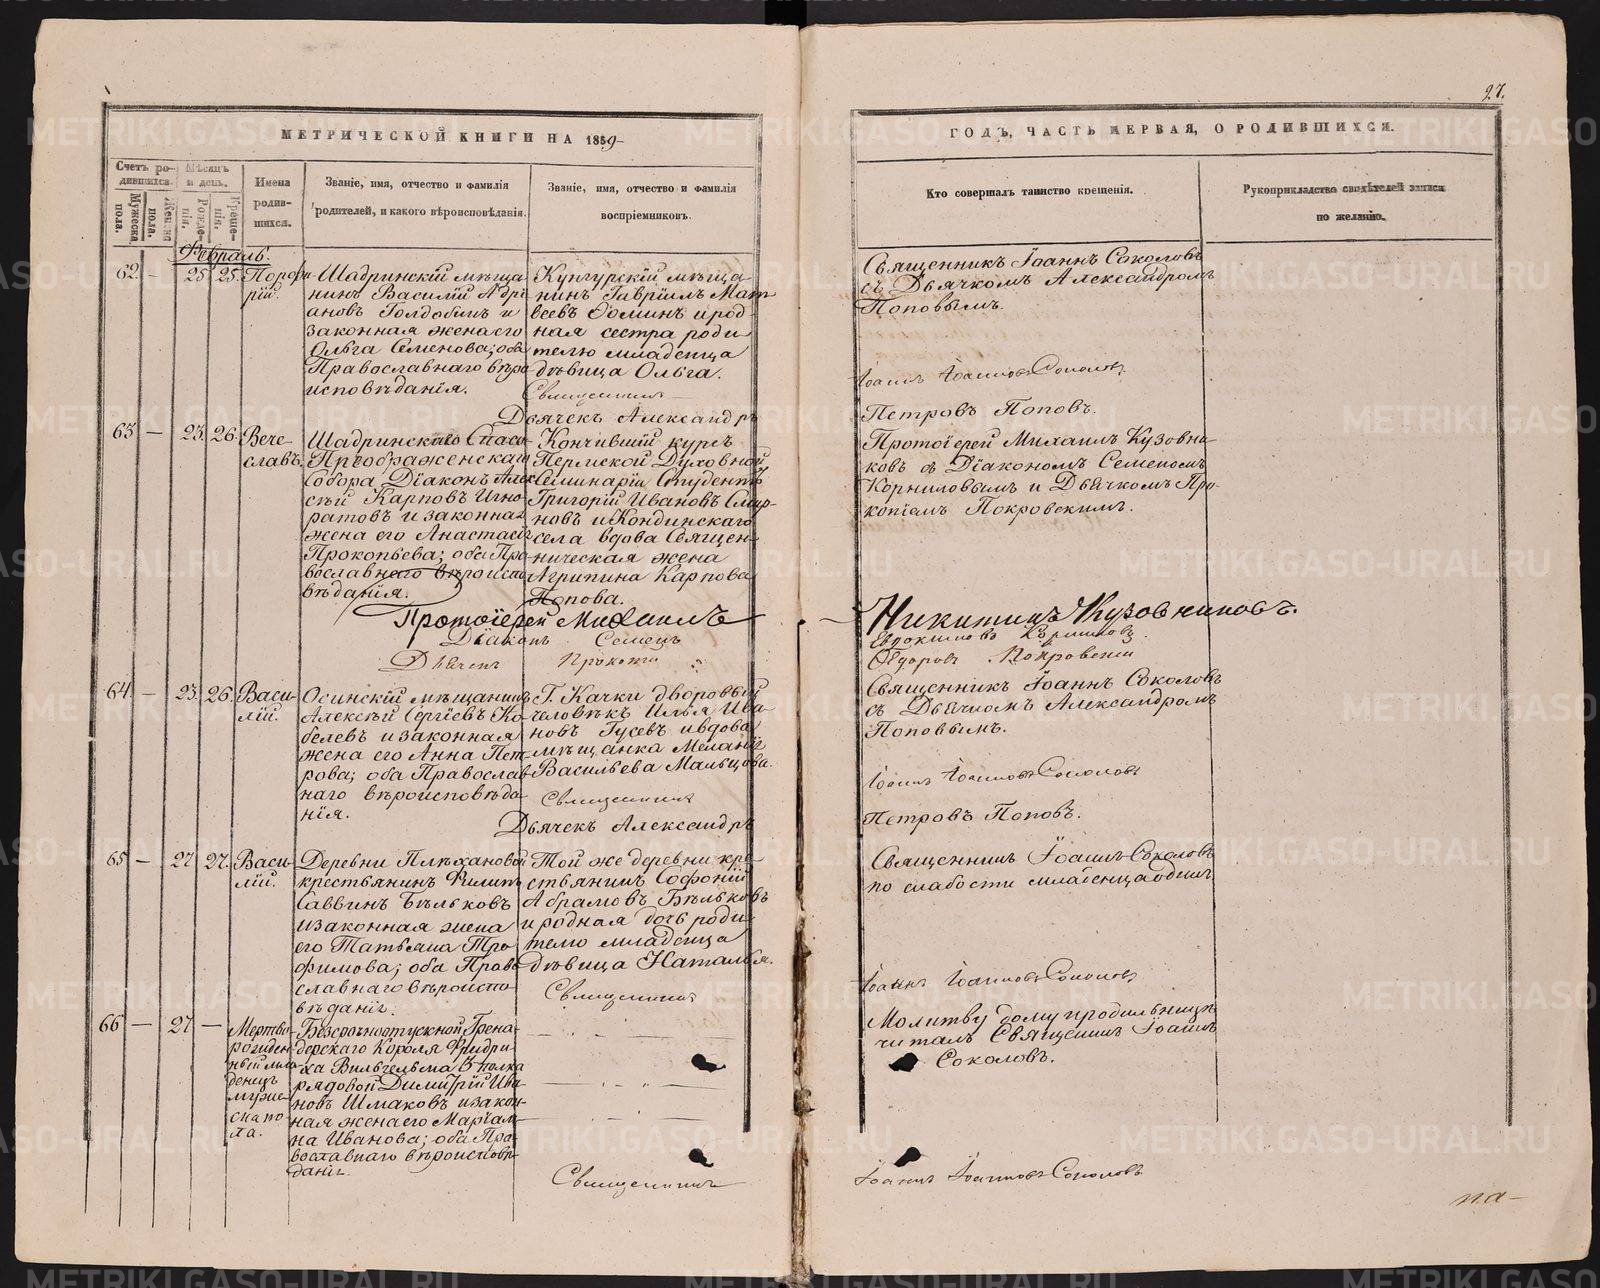 27.
МЕТРИЧЕСКОЙ КНИГИ НА 1859
ГОДЪ, ЧАСТЬ ПЕРВАЯ, О РОДИВШИХСЯ.
Счетъ ро-
дившихся.
Мужеска
пола.
Женска
пола.
Мѣсяцъ
и день.
Рожде-
нія.
Креще-
нія.
Имена
родив-
шихся.
Званіе, имя, отчество и фамилія
родителей, и какого вѣроисповѣданія.
Званіе, имя, отчество и фамилія
воспріемниковъ.
Кто совершалъ таинство крещенія.
Рукоприкладство свидѣтелей записи
по желанію.
Февраль.
62. — 25 25. Порфи-
рій.
Шадринскій мѣща
нинъ Василій Адрі
ановъ Голдобинъ и
законная жена его
Ольга Семенова; оба
Православнаго вѣро
исповѣданія.
Кунгурскій мѣща
нинъ Гавріилъ Мат
веевъ Ѳоминъ и род
ная сестра роди
телю младенца
дѣвица Ольга.
Священникъ
Дьячекъ Александръ
Священникъ Іоаннъ Соколовъ
съ Дьячкомъ Александромъ
Поповымъ.
Іоаннъ Іоанновъ Соколовъ
Петровъ Поповъ.
63 — 23. 26. Вече-
славъ.
Шадринскаго Спасо-
Преображенскаго
Собора Діаконъ Алек
сѣй Карповъ Игно-
ратовъ и законная
жена его Анастасія
Прокопьева; оба Пра
вославнаго вѣроиспо
вѣданія.
Кончившій курсъ
Пермской Духовной
Семинаріи Студентъ
Григорій Ивановъ Смир-
новъ и Кондинскаго
села вдова Священ-
ническая жена
Агрипина Карпова
Попова.
Протоіерей Михаилъ
Діаконъ Семенъ
Дьячекъ Прокопій
Протоіерей Михаилъ Кузовни-
ковъ съ Діакономъ Семеномъ
Корниловымъ и Дьячкомъ Про-
копіемъ Покровскимъ.
Никитинъ Кузовниковъ.
Евдокимовъ Корниловъ
Ѳедоровъ Покровскій
64. — 23. 26. Васи-
лій.
Осинскій мѣщанинъ
Алексѣй Сергіевъ Ко-
белевъ и законная
жена его Анна Пет-
рова; оба Православ
наго вѣроисповѣда-
нія.
Г. Качки дворовый
человѣкъ Илья Ива
новъ Гусевъ и вдова
мѣщанка Меланія
Васильева Мальцова.
Священникъ
Дьячекъ Александръ
Священникъ Іоаннъ Соколовъ
съ Дьячкомъ Александромъ
Поповымъ.
Іоаннъ Іоанновъ Соколовъ
Петровъ Поповъ.
65 — 27 27. Васи-
лій.
Деревни Плюхановой
крестьянинъ Филипъ
Саввинъ Бѣльковъ
и законная жена
его Татьяна Тро
фимова; оба Право
славнаго вѣроиспо
вѣданія.
Той же деревни кре-
стьянинъ Софоній
Абрамовъ Бѣльковъ
и родная дочь роди-
телю младенца
дѣвица Наталья.
Священникъ
Священникъ Іоаннъ Соколовъ
по слабости младенца одинъ
Іоаннъ Іоанновъ Соколовъ
66 — 27 — Мертво-
рожден-
ный мла
денецъ
муже-
ска по
ла.
Безсрочноотпускной Грена-
дерскаго Короля Фридри-
ха Вильгельма 3 полка
рядовой Димитрій Ива
новъ Шмаковъ и закон-
ная жена его Маріам-
на Иванова; оба Пра-
вославнаго вѣроисповѣ-
данія.
Священникъ
Молитву дому и родильницѣ
читалъ Священникъ Іоаннъ
Соколовъ.
Іоаннъ Іоанновъ Соколовъ
на-
METRIKI.GASO-URAL.RU